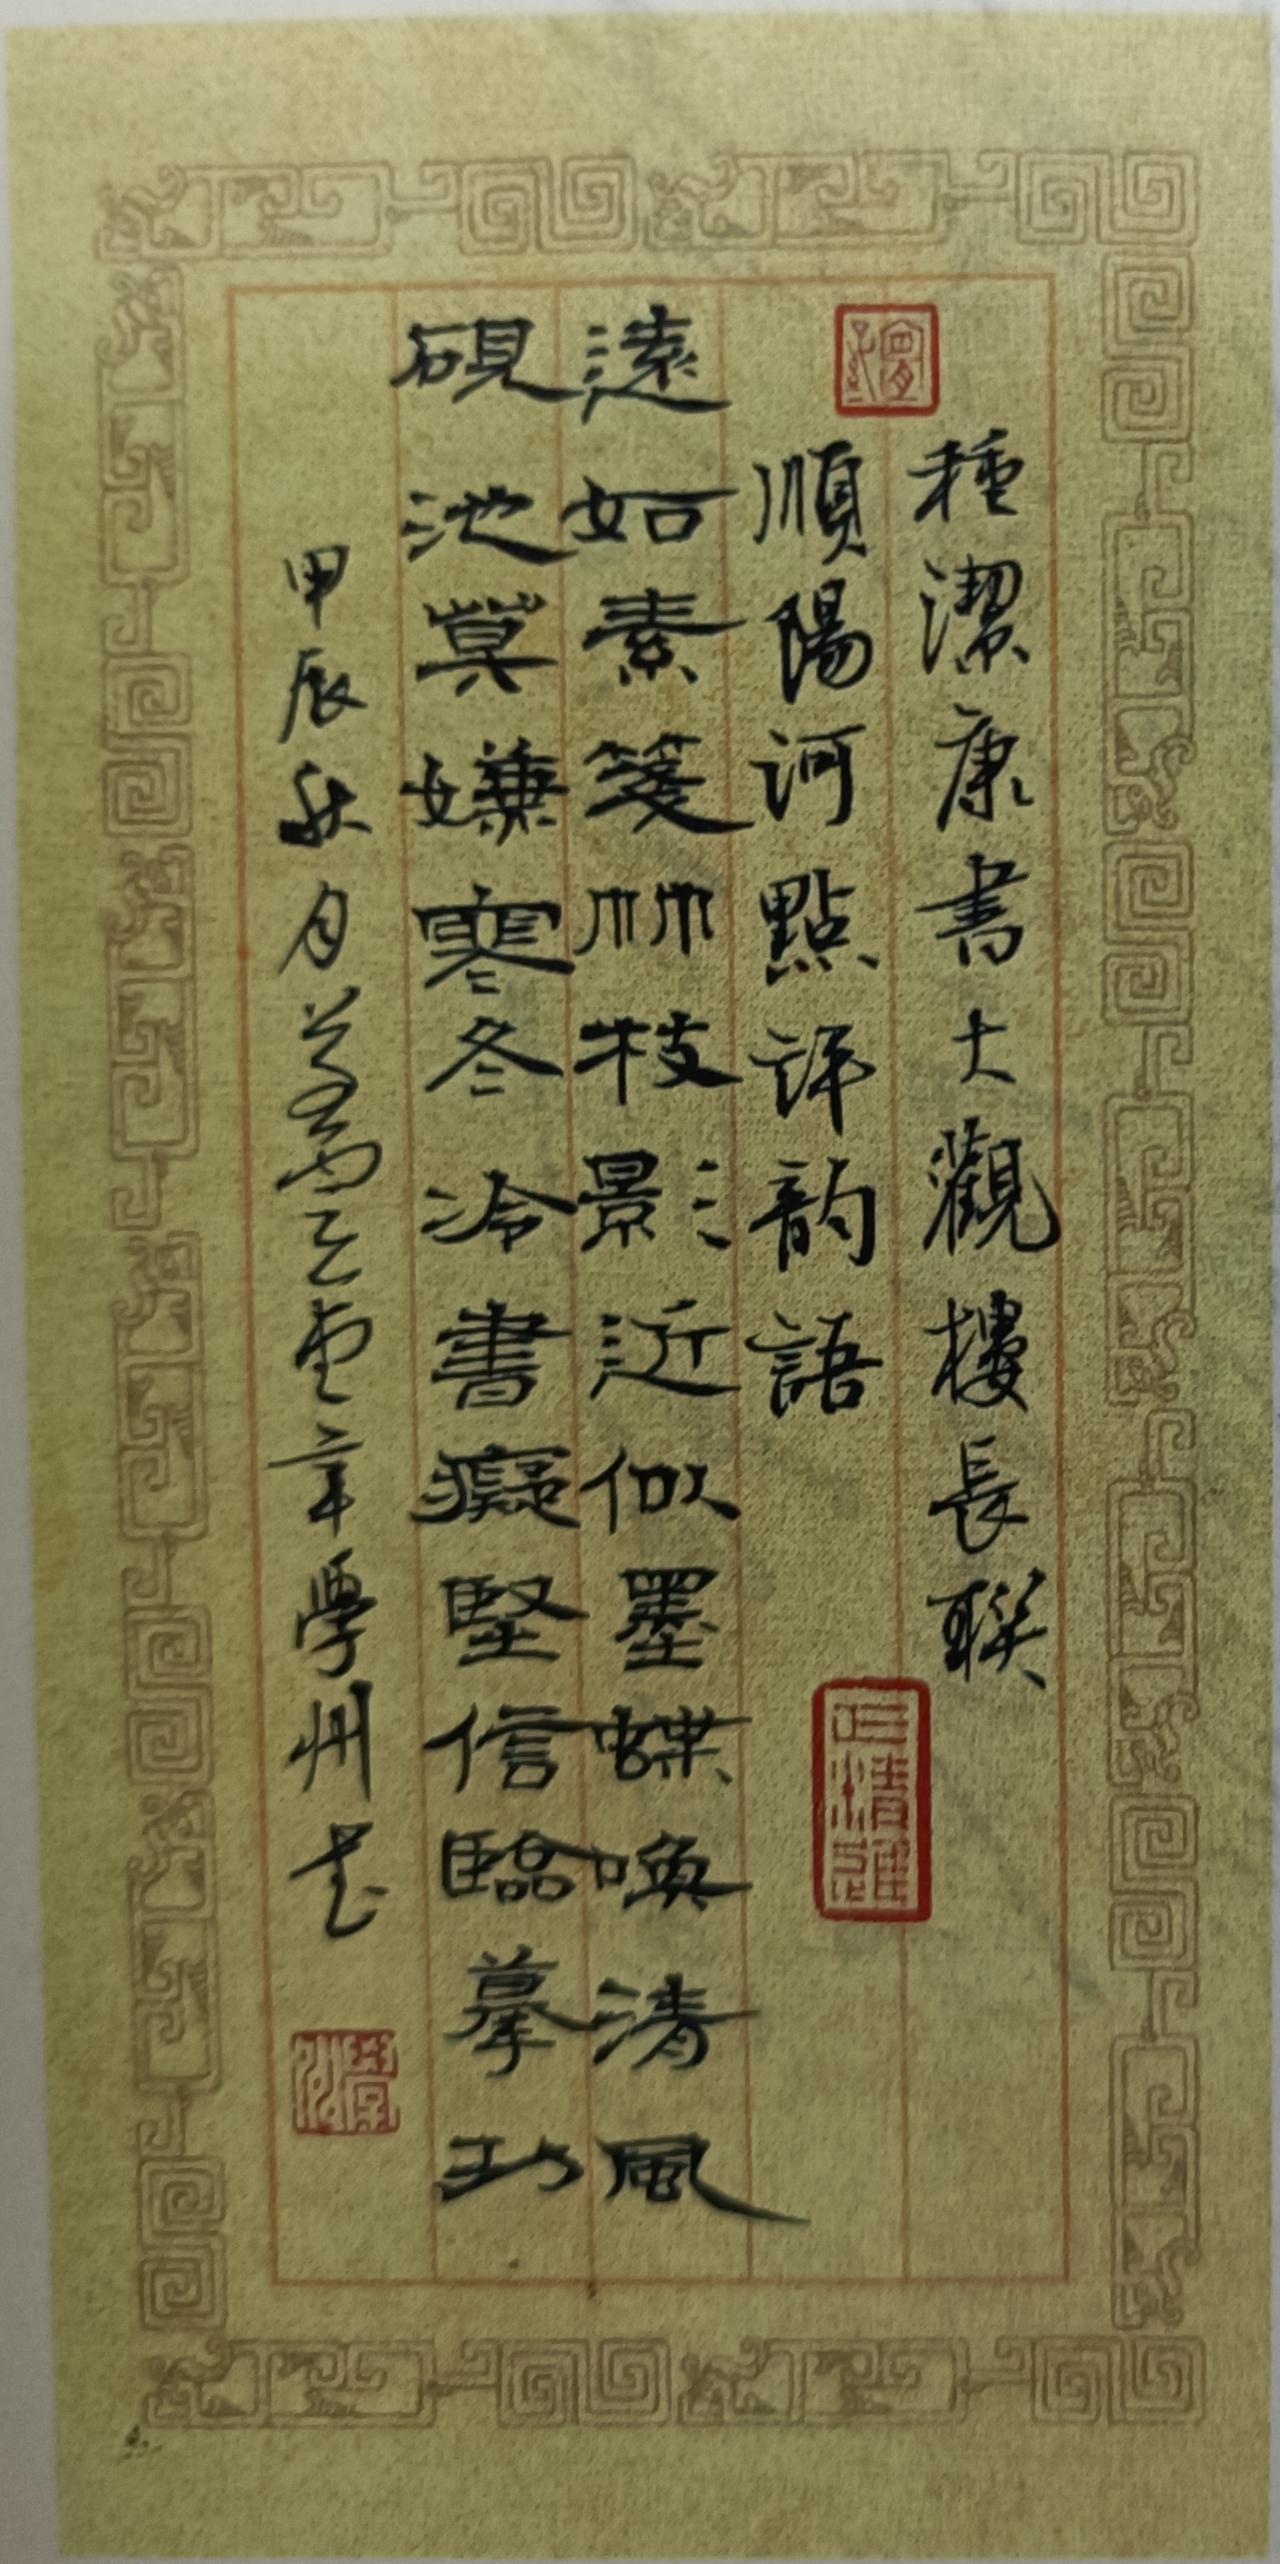 種潔康書大觀樓長联
順陽河點評韵語
遠如素箋竹枝影近似墨蝶喚清風
硯池莫嫌寒冬冷書癡堅信臨摹功
甲辰秋月 堂主章學州书